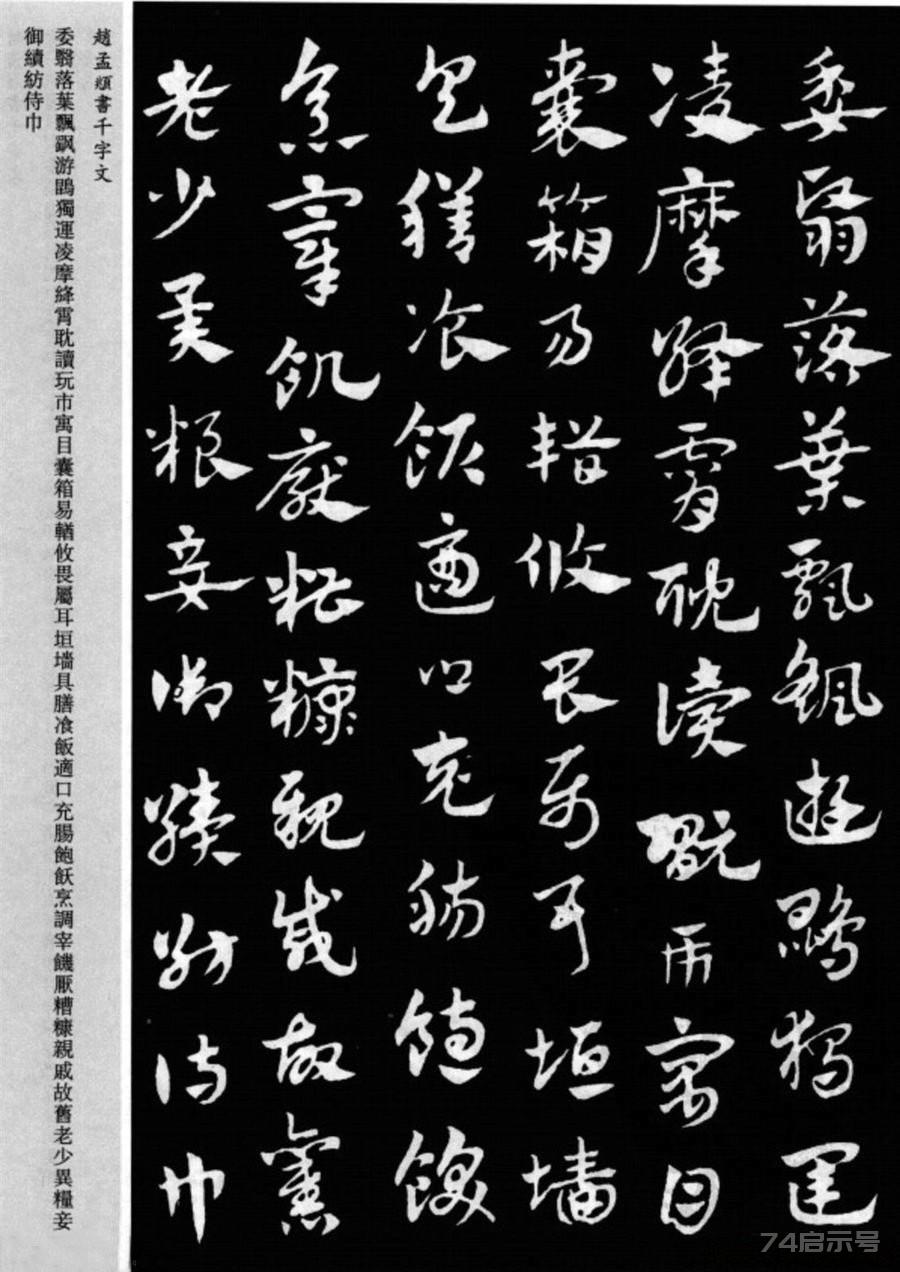 委翳落葉飄飖遊鵾獨運
凌摩絳霄耽讀翫市寓目
囊箱易輶攸畏屬耳垣墻
具膳飡飯適口充腸飽飫
烹宰飢厭糟糠親戚故舊
老少異糧妾御績紡侍巾
趙孟頫書千字文
委翳落葉飄飖游鵾獨運凌摩絳霄耽讀玩市寓目囊箱易輶攸畏屬耳垣墻具膳飡飯適口充腸飽飫烹調宰饑厭糟糠親戚故舊老少異糧妾
御績紡侍巾
74启示号